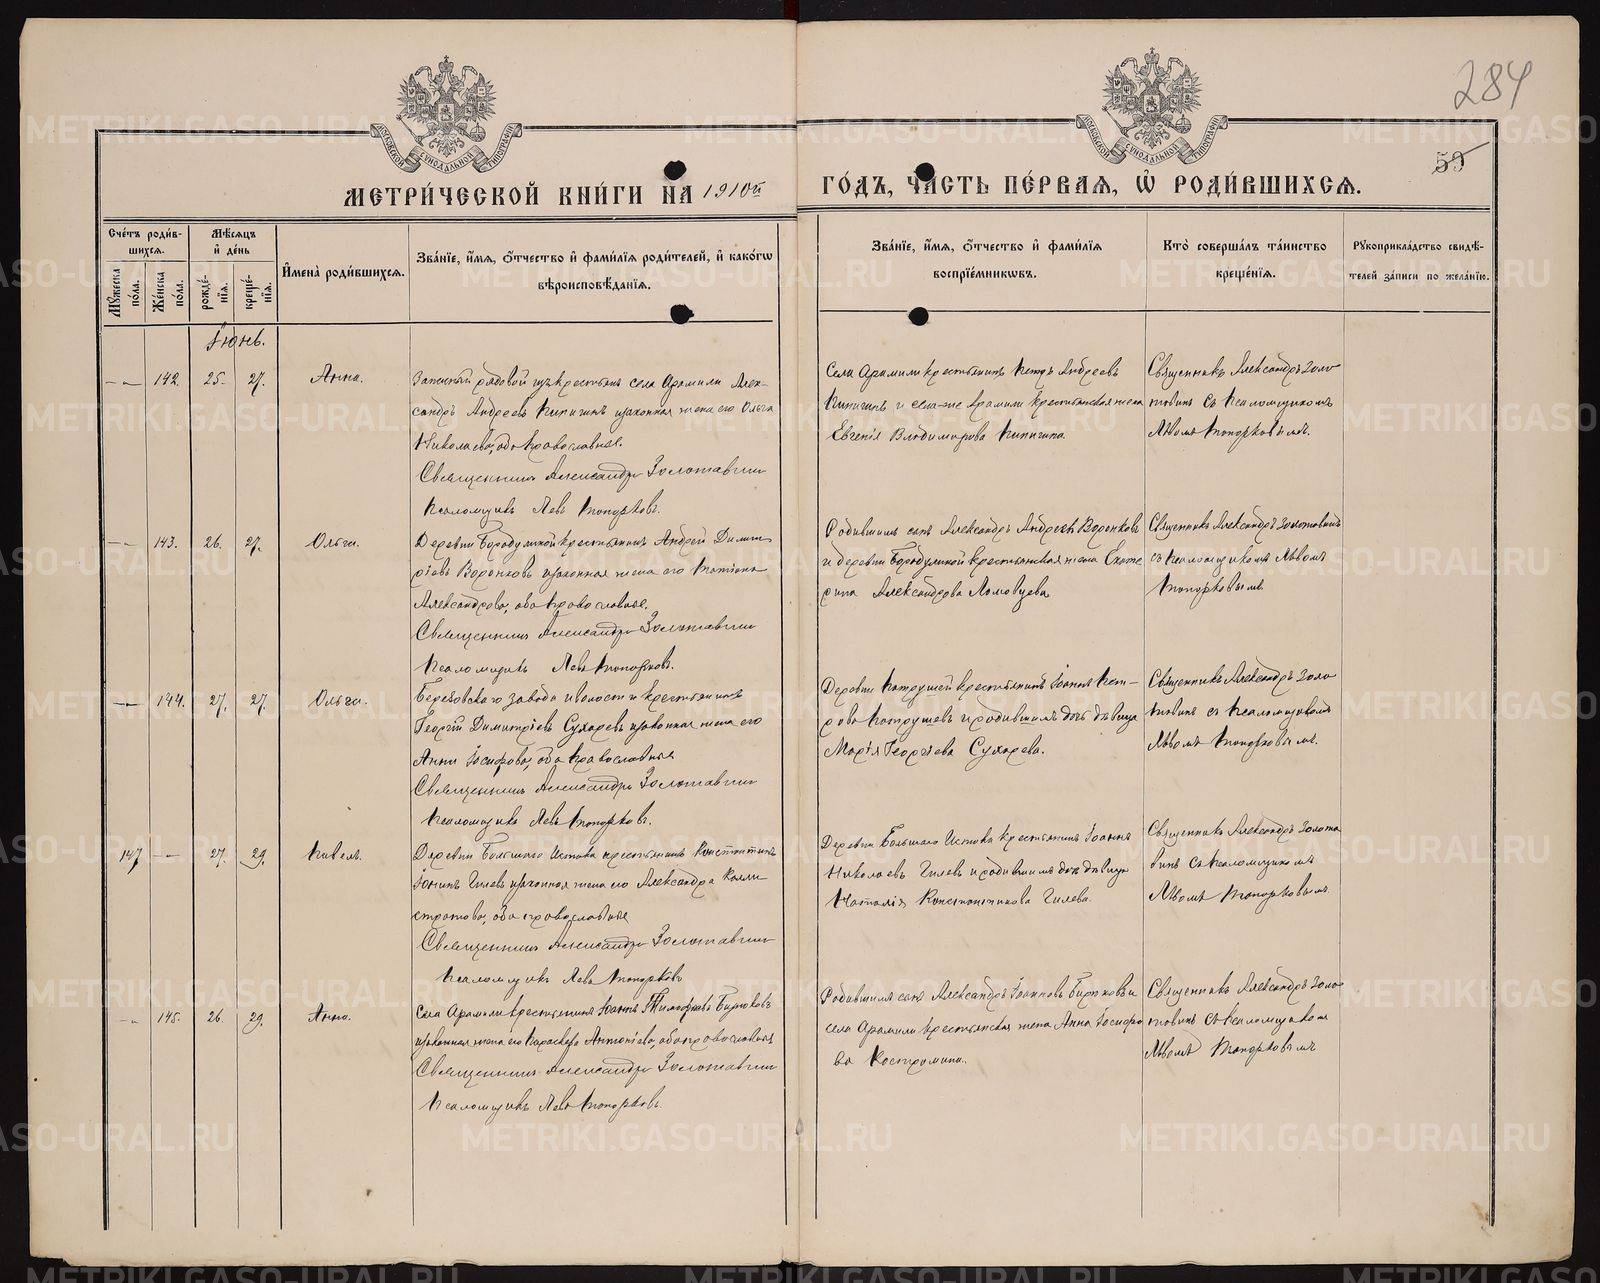 284
59
МЕТРИ́ЧЕСКОЙ КНИ́ГИ НА 1910й
ГО́ДЪ, ЧАСТЬ ПЕ́РВАЯ, Ѡ҆ РОДИ́ВШИХСЯ.
Сче́тъ роди́в-
шихся.
Мꙋ́жеска по́ла.
Же́нска по́ла.
Мѣ́сяцъ
и҆ де́нь
рожде́-
нїя.
креще́-
нїя.
И҆мена̀ роди́вшихся.
Зва́нїе, и҆́мя, ѻ҆́тчество и҆ фами́лїя роди́телей, и҆ како́гѡ
вѣроисповѣ́данїя.
Зва́нїе, и҆́мя, ѻ҆́тчество и҆ фами́лїя
воспрїе́мникѡвъ.
Кто̀ соверша́лъ та́инство
креще́нїя.
Рꙋкоприкла́дство свидѣ́-
телей за́писи по жела́нїю.
Іюнь.
142. 25. 27. Анна.
Запасный рядовой изъ крестьянъ села Арамили Алек-
сандръ Андреевъ Кипигинъ и законная жена его Ольга
Николаева, оба православные.
Священникъ Александръ Золотавинъ
Псаломщикъ Левъ Топорковъ.
Села Арамили крестьянинъ Петръ Андреевъ
Кипигинъ и села-же Арамили крестьянская жена
Евгенія Владимирова Кипигина.
Священникъ Александръ Золо
тавинъ съ псаломщикомъ
Львомъ Топорковымъ.
143. 26. 27. Ольга.
Деревни Бородулиной крестьянинъ Андрей Димит-
ріевъ Воронковъ и законная жена его Татіана
Александрова, оба православные.
Священникъ Александръ Золотавинъ
Псаломщикъ Левъ Топорковъ.
Родившимъ сынъ Александръ Андреевъ Воронковъ
и деревни Бородулиной крестьянская жена Екате
рина Александрова Ломовцева
Священникъ Александръ Золотавинъ
съ псаломщикомъ Львомъ
Топорковымъ.
144. 27. 27. Ольга.
Березовского завода и волости крестьянинъ
Георгій Димитріевъ Сухаревъ и законная жена его
Анна Іосифова, оба православные
Священникъ Александръ Золотавинъ
Псаломщикъ Левъ Топорковъ.
Деревни Патрушей крестьянинъ Іоаннъ Пет-
ровъ Патрушевъ и родившимъ дочь дѣвица
Марія Георгіева Сухарева.
Священникъ Александръ Золо
тавинъ съ псаломщикомъ
Львомъ Топорковымъ.
147 27. 29. Павелъ.
Деревни Большого Истока крестьянинъ Константинъ
Іонинъ Гилевъ и законная жена его Александра Калли
стратова, оба православные
Священникъ Александръ Золотавинъ
Псаломщикъ Левъ Топорковъ
Деревни Большого Истока крестьянинъ Іоаннъ
Николаевъ Гилевъ и родившимъ дочь дѣвица
Наталія Константинова Гилева.
Священникъ Александръ Золота
винъ съ псаломщикомъ
Львомъ Топорковымъ.
145. 26. 29. Анна.
Села Арамили крестьянинъ Іоаннъ Тимофеевъ Бирюковъ
и законная жена его Параскева Антоніева, оба православные
Священникъ Александръ Золотавинъ
Псаломщикъ Левъ Топорковъ.
Родившимъ сынъ Александръ Іоанновъ Бирюковъ и
села Арамили крестьянская жена Анна Іосифо
ва Костромина.
Священникъ Александръ Золо-
тавинъ съ псаломщикомъ
Львомъ Топорковымъ
METRIKI.GASO-URAL.RU